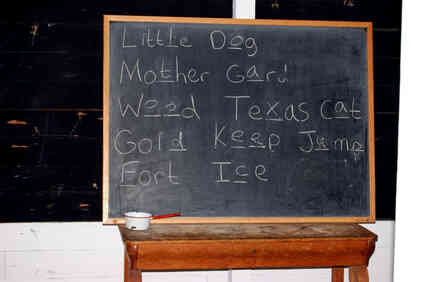 Little Dog
Mother Gard
Weed Texas cat
Gold Keep Jump
Fort Ice